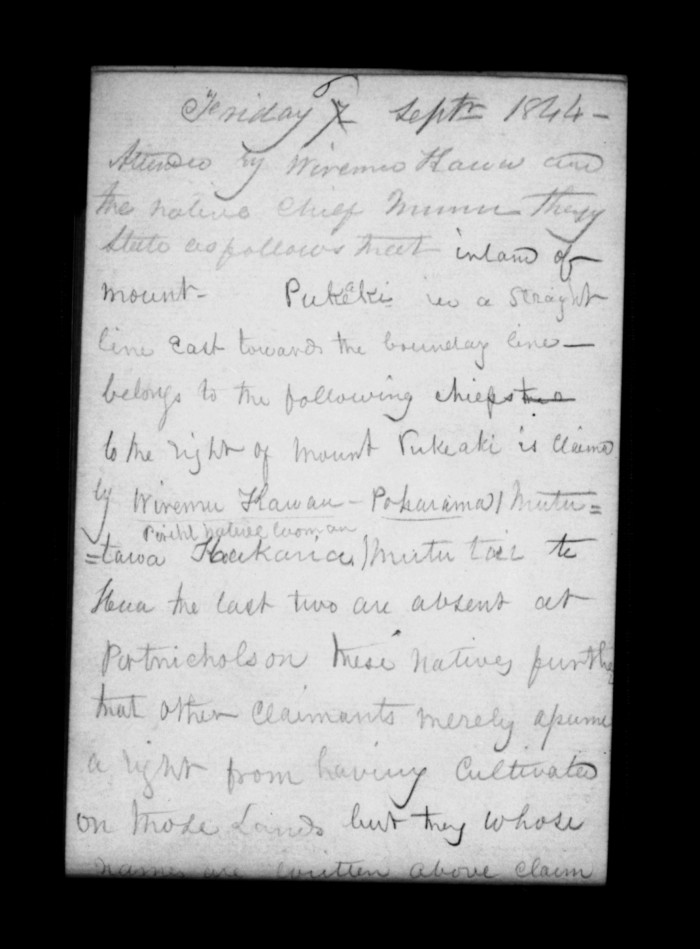 Friday 6 Septr 1844 -
Attended by Wiremu Kawau and
the native Chief Mumu They
State as follows that inland of
mount - Pukeaki in a straght
line East towards the bounday line -
belongs to the following chiefs
to the right of mount Pukeaki is claimd
by Wiremu Kawau - Poharama / Mutu=
native woman
=tawa / Mutu tai te
Hua the last two are absent at
Portnicholson these natives further
that other claimants merely assume
a right from having Cultivated
on those Lands but they whose
names are written above claim